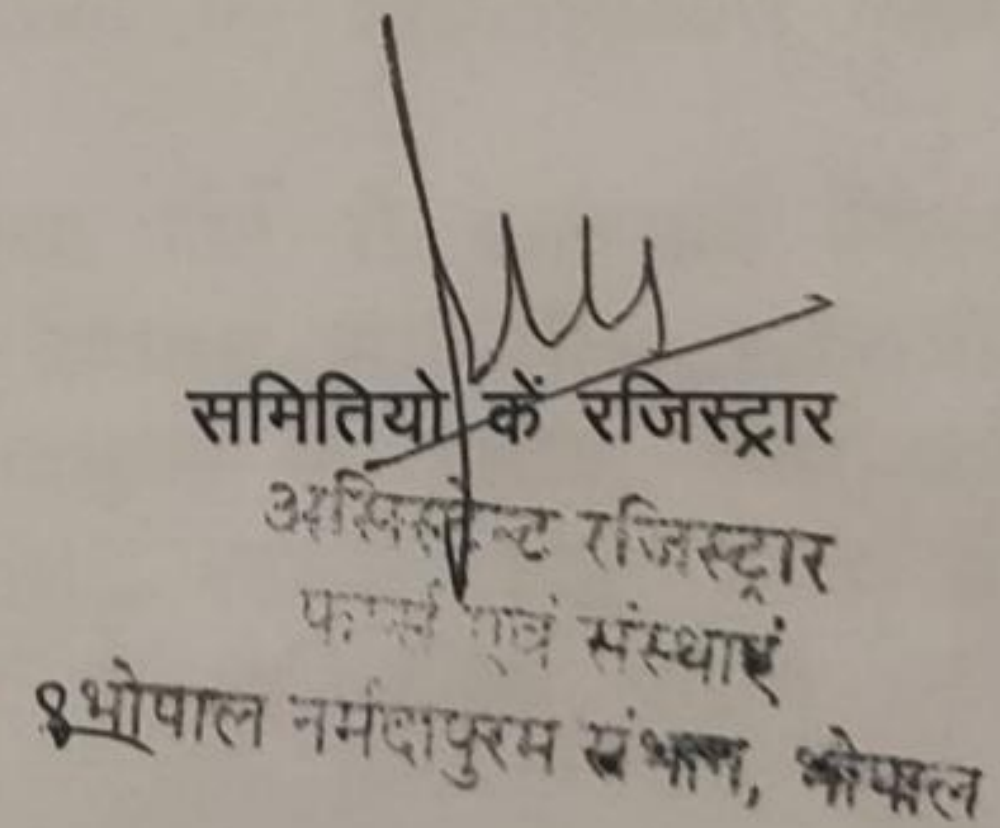 समितियो कें रजिस्ट्रार
असिस्टेन्ट रजिस्ट्रार
फर्म्स एवं संस्थाएं
भोपाल नर्मदापुरम संभाग, भोपाल